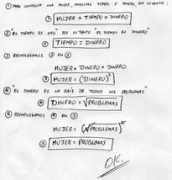 ① PARA CONSEGUIR UNA MUJER, NECESITAS TIEMPO Y DINERO, EN CONCRETO:
① MUJER = TIEMPO × DINERO
② EL TIEMPO ES ORO POR LO TANTO "EL TIEMPO ES DINERO"
② TIEMPO = DINERO
③ REEMPLAZAMOS ② EN ①
MUJER = DINERO × DINERO
③ MUJER = (DINERO)²
④ "EL DINERO ES LA RAÍZ DE TODOS LOS PROBLEMAS"
④ DINERO = √PROBLEMAS
⑤ REEMPLAZAMOS ④ EN ③
MUJER = (√PROBLEMAS)²
⑤ MUJER = PROBLEMAS
OK.